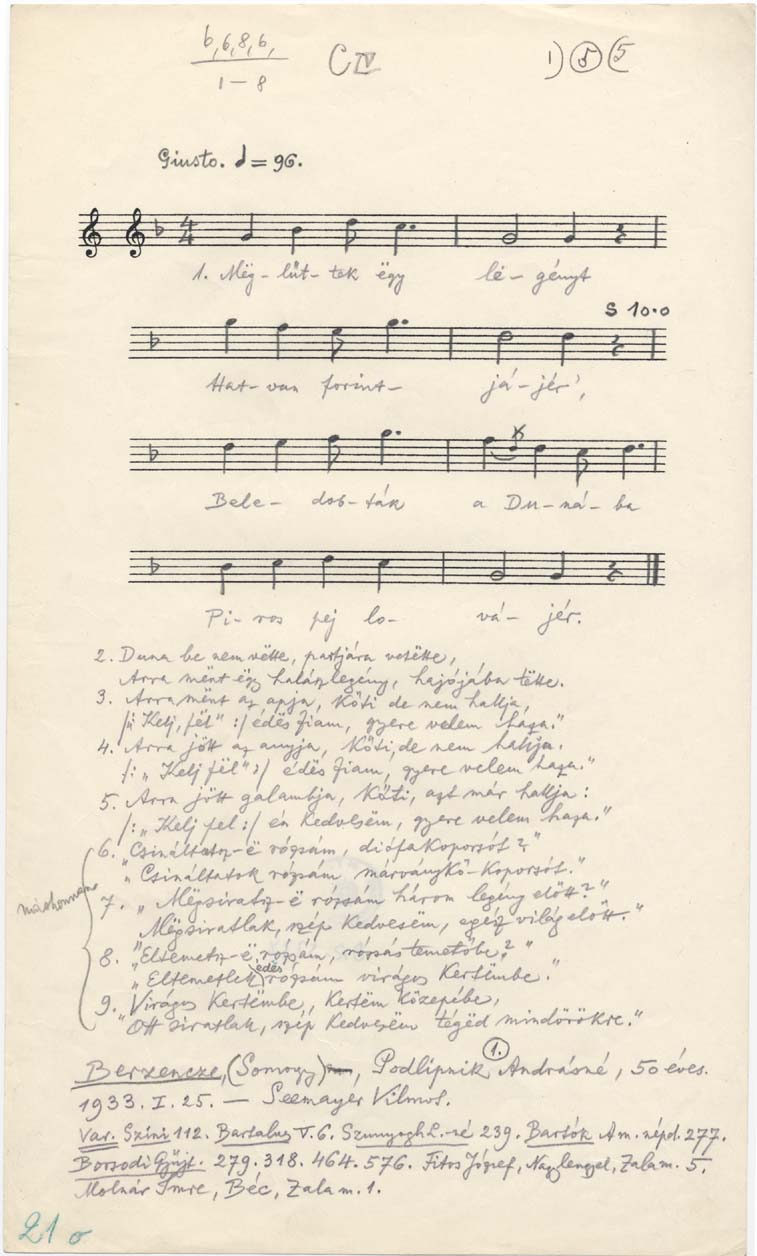 6,6,8,6,
1-8
C IV
1) 5 (5
Giusto. = 96.
4
4
1. Mëg-lűt-tek ëgy lë-gényt
S 10.0
Hat-van forint-já-jér',
Bele-dob-ták a Du-ná-ba
Pi-ros pej lo-vá-jér.
2. Duna be nem vëtte, partjára vetëtte,
Arra mënt ëgy halászlegény, hajójába tëtte.
3. Arra mënt az apja, Kőti de nem hallja,
/: "Kelj, fël" :/ édës fiam, gyere velem haza."
4. Arra jött az anyja, Kőti, de nem hallja.
/: "Kelj fël" :/ édës fiam, gyere velem haza."
5. Arra jött galambja, Kőti, azt már hallja:
/: "Kelj fel :/ én Kedvesëm, gyere velem haza."
6. "Csináltatsz-ë rózsám, diófakoporsót?"
"Csináltatok rózsám márványkő-koporsót."
7. "Mëgsiratsz-ë rózsám három legény előtt?"
Mëgsiratlak, szép Kedvesëm, egész világ előtt."
8. "Eltemetsz-ë, rózsám, rózsás temetőbe?"
"Eltemetlek édës rózsám virágos Kertëmbe."
9. "Virágos Kertëmbe, Kertëm közepébe,
"Ott siratlak, szép Kedvesëm tégëd mindörökre."
Berzencze, (Somogy), Podlipnik Andrásné, 50 éves.
1.
1933. I. 25. — Seemayer Vilmos.
Var. Szini 112. Bartalus V. 6. Szunyogh L.-né 239. Bartók A m. népd. 277.
Borsodi Gyüjt. 279. 318. 464. 576. Fitos József, Nagylengyel, Zala m. 5.
Molnár Imre, Béc, Zala m. 1.
21 o